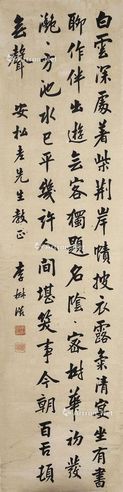 白雲深處著柴荊岸幘披衣露氣清宴坐有書
聊作伴出遊無客獨題名陰〻密樹華初發
灩〻方池水已平幾許人間堪笑事今朝百舌頓
無聲 安松老先生教正 李